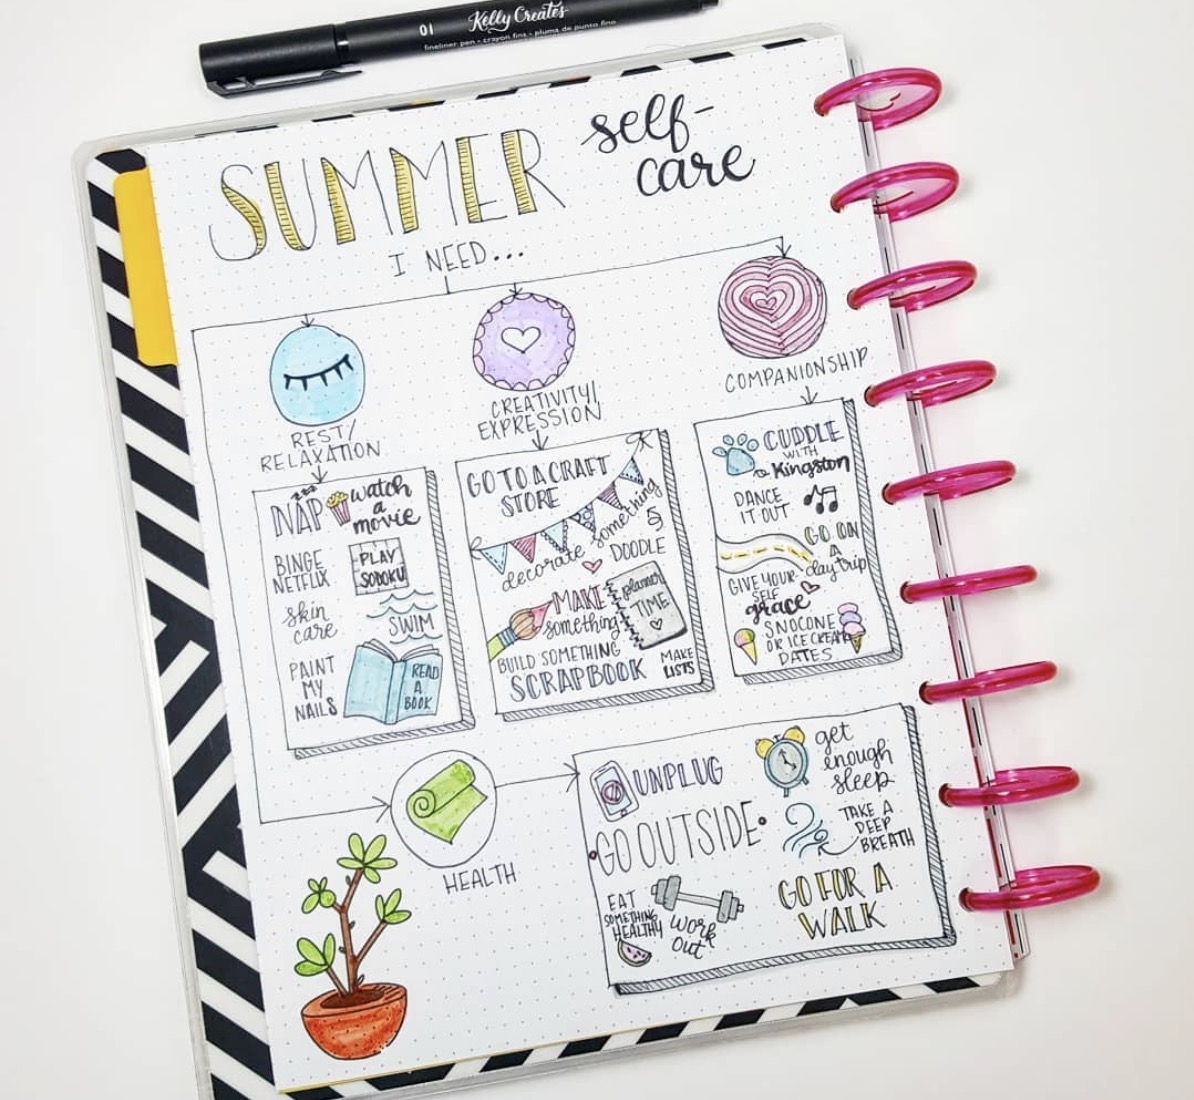 01
Kelly Creates
fineliner pen • crayon fins • pluma de punto fino
SUMMER
self-
care
I NEED...
REST/
RELAXATION
zzz
NAP
watch
a
movie
BINGE
NETFLIX
PLAY
SODOKU
skin
care
SWIM
PAINT
MY
NAILS
READ
A
BOOK
CREATIVITY/
EXPRESSION
GO TO A CRAFT
STORE
decorate something
DOODLE
MAKE
something
planner
TIME
BUILD SOMETHING
SCRAPBOOK
MAKE
LISTS
COMPANIONSHIP
CUDDLE
WITH
Kingston
DANCE
IT OUT
GO ON
A
day trip
GIVE YOUR-
SELF
grace
SNOCONE
OR ICE CREAM
DATES
HEALTH
UNPLUG
get
enough
sleep
GO OUTSIDE
TAKE A
DEEP
BREATH
EAT
SOMETHING
HEALTHY
work
out
GO FOR A
WALK